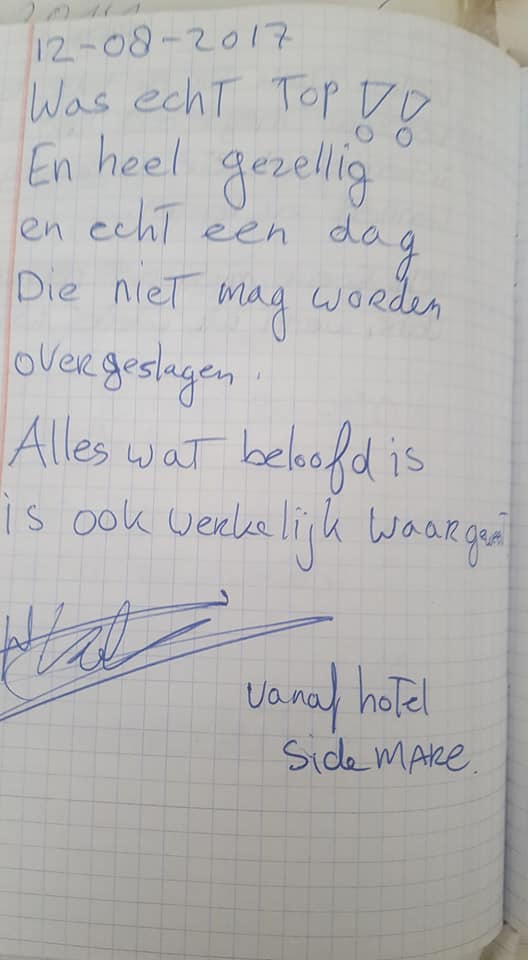 12-08-2017
Was echt Top!!
En heel gezellig
en echt een dag
Die niet mag worden
overgeslagen.
Alles wat beloofd is
is ook werkelijk waar
vanaf hotel
Side MARE.